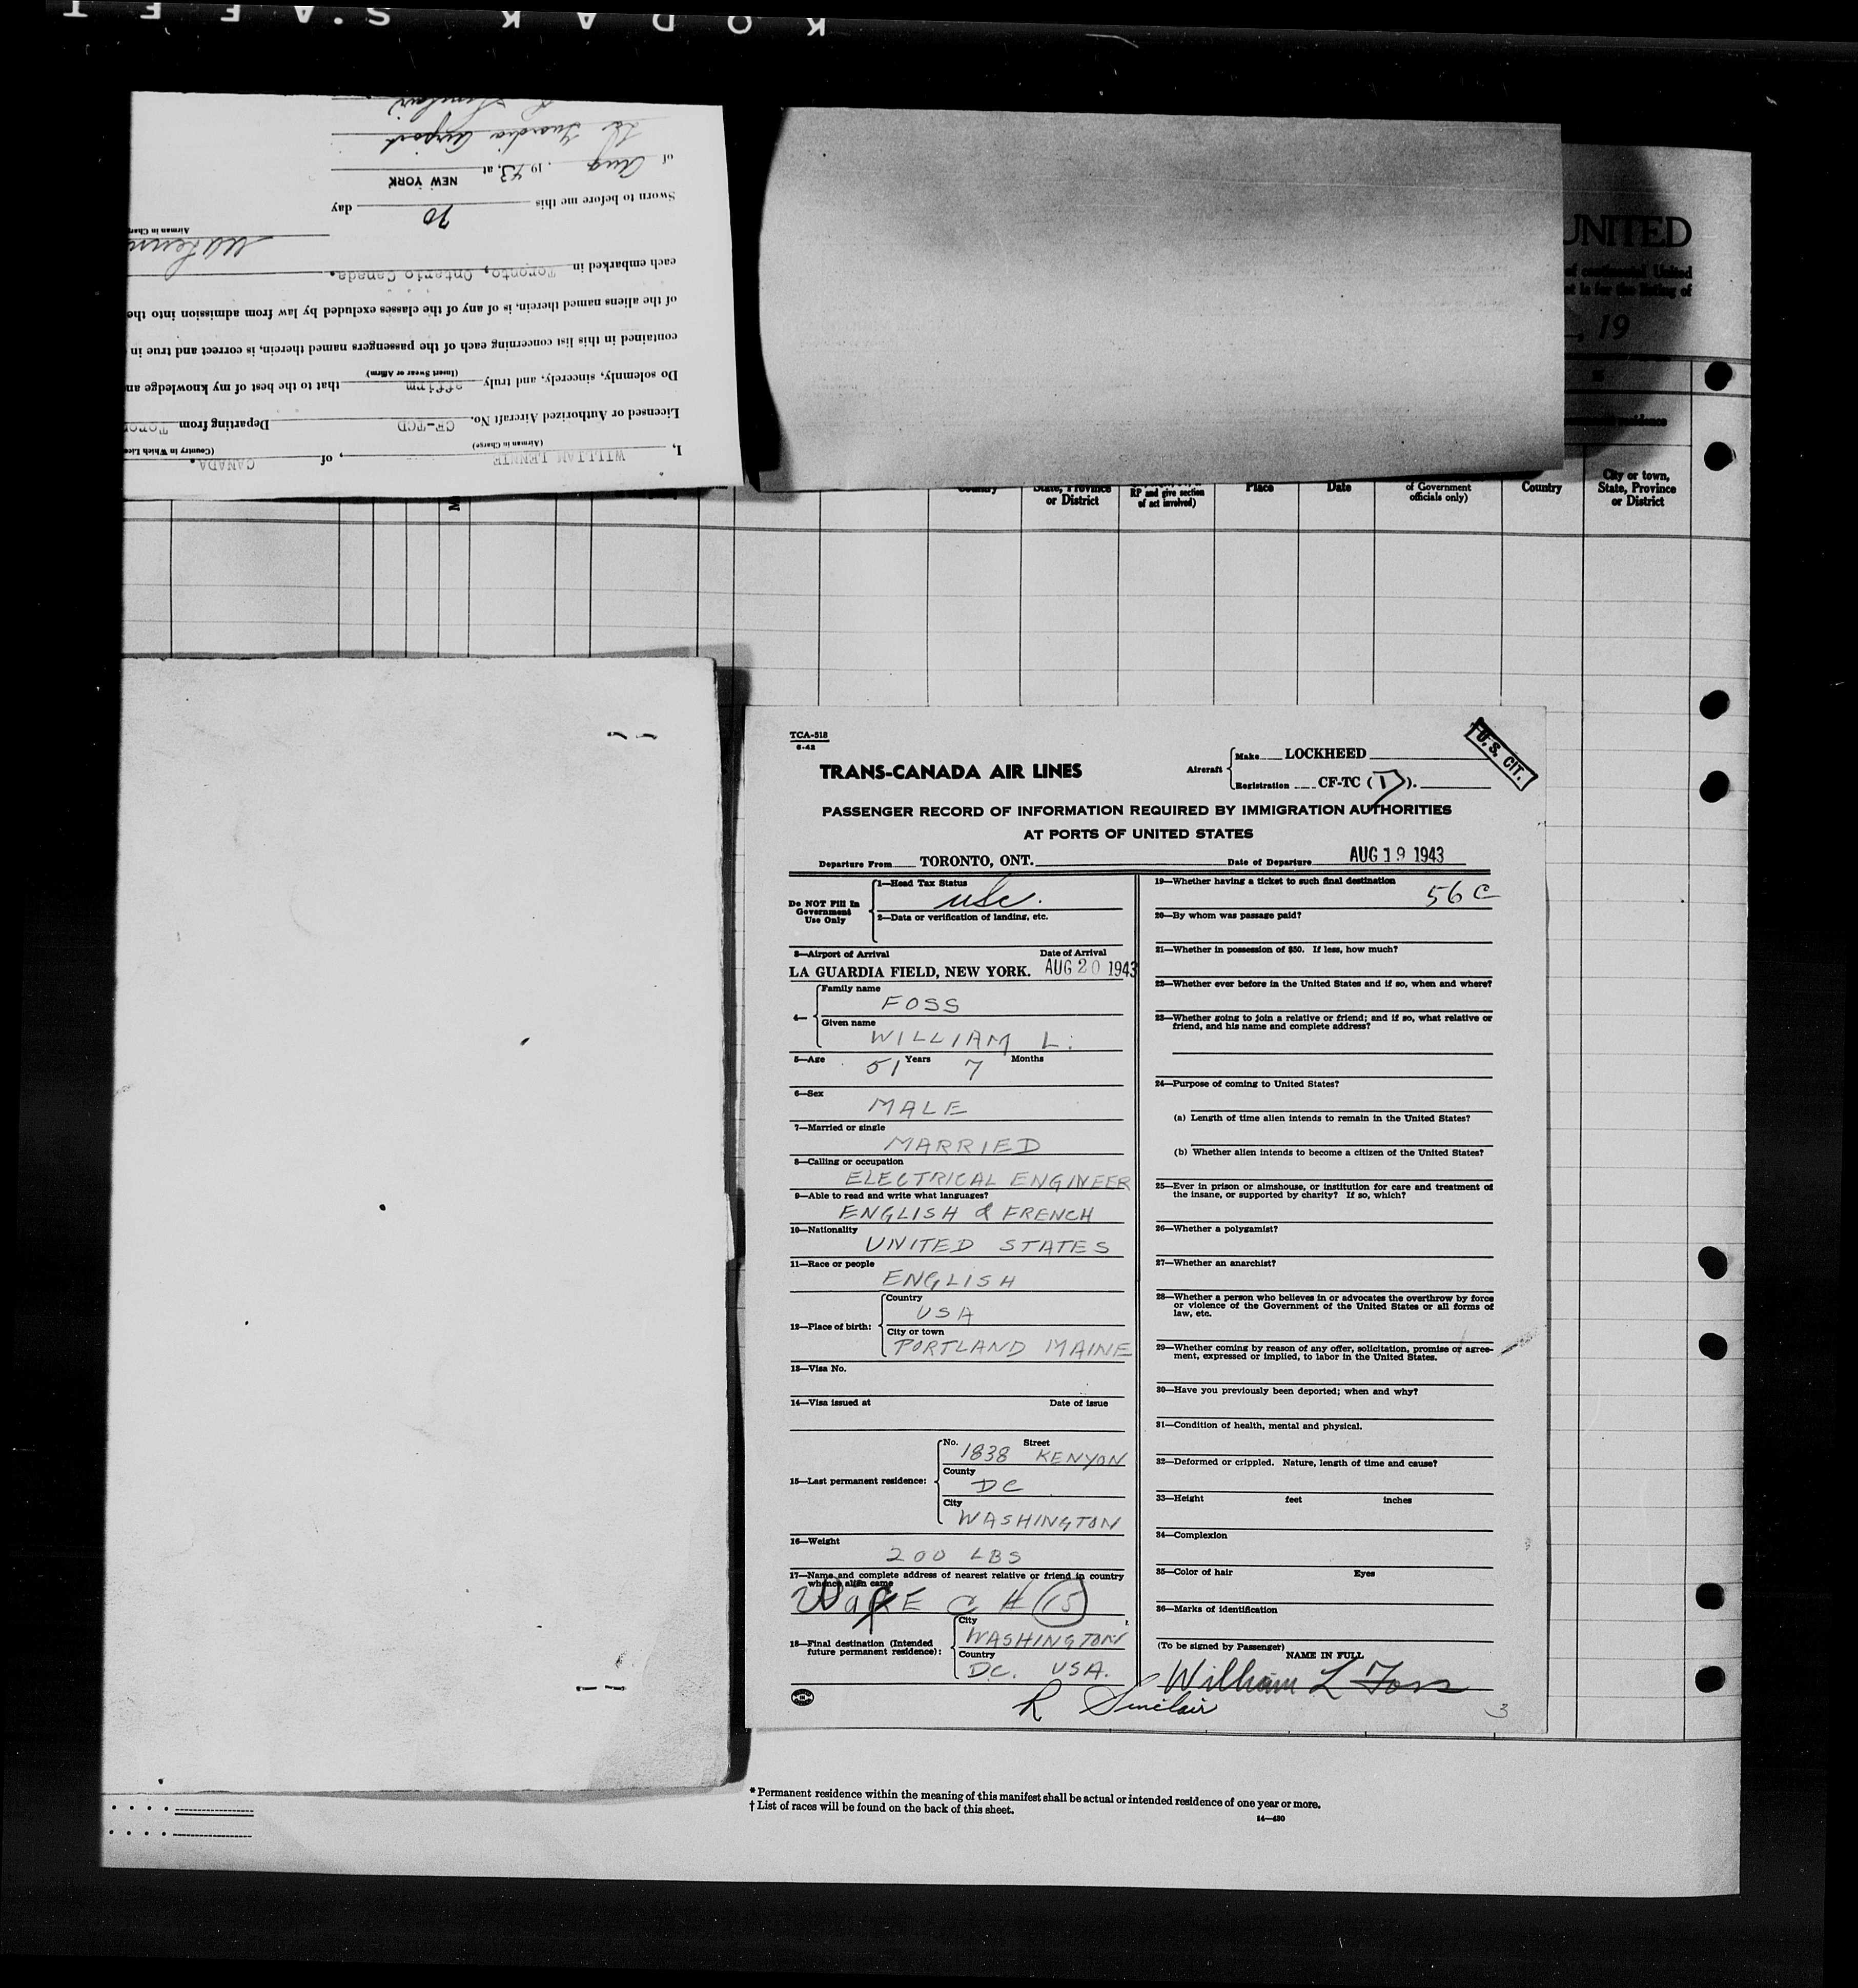 KODAK SAFET
I, WILLIAM LENNIE, of CANADA.
(Airman in Charge) (Country in Which Lice
Licensed or Authorized Aircraft No. CF-TCD Departing from Toron
Do solemnly, sincerely, and truly affirm that to the best of my knowledge an
(Insert Swear or Affirm)
contained in this list concerning each of the passengers named therein, is correct and true in
of the aliens named therein, is of any of the classes excluded by law from admission into the
each embarked in Toronto, Ontario Canada.
Airman in Charg
Sworn to before me this 20 day
NEW YORK
of Aug. 1943, at
La Guardia Airport
R Sinclair
UNITED
of continental United
et is for the listing of
, 19
residence
Country
State, Province
or District
RP and give section
of act involved)
Place
Date
of Government
officials only)
Country
City or town,
State, Province
or District
TCA-518
6-42
TRANS-CANADA AIR LINES
Aircraft
Make LOCKHEED
Registration CF-TC (D).
U.S. CIT.
PASSENGER RECORD OF INFORMATION REQUIRED BY IMMIGRATION AUTHORITIES
AT PORTS OF UNITED STATES
Departure From TORONTO, ONT. Date of Departure AUG 19 1943
Do NOT Fill In
Government
Use Only
1—Head Tax Status
usc.
2—Data or verification of landing, etc.
3—Airport of Arrival Date of Arrival
LA GUARDIA FIELD, NEW YORK. AUG 20 1943
4—
Family name
FOSS
Given name
WILLIAM L.
5—Age 51 Years 7 Months
6—Sex
MALE
7—Married or single
MARRIED
8—Calling or occupation
ELECTRICAL ENGINEER
9—Able to read and write what languages?
ENGLISH & FRENCH
10—Nationality
UNITED STATES
11—Race or people
ENGLISH
12—Place of birth:
Country
USA
City or town
PORTLAND MAINE
13—Visa No.
14—Visa issued at Date of issue
15—Last permanent residence:
No. Street
1838 KENYON
County
DC
City
WASHINGTON
16—Weight
200 LBS
17—Name and complete address of nearest relative or friend in country
whence alien came
C H 15
18—Final destination (Intended
future permanent residence):
City
WASHINGTON
Country
DC. USA.
19—Whether having a ticket to such final destination
56 C
20—By whom was passage paid?
21—Whether in possession of $50. If less, how much?
22—Whether ever before in the United States and if so, when and where?
23—Whether going to join a relative or friend; and if so, what relative or
friend, and his name and complete address?
24—Purpose of coming to United States?
(a) Length of time alien intends to remain in the United States?
(b) Whether alien intends to become a citizen of the United States?
25—Ever in prison or almshouse, or institution for care and treatment of
the insane, or supported by charity? If so, which?
26—Whether a polygamist?
27—Whether an anarchist?
28—Whether a person who believes in or advocates the overthrow by force
or violence of the Government of the United States or all forms of
law, etc.
29—Whether coming by reason of any offer, solicitation, promise or agree-
ment, expressed or implied, to labor in the United States.
30—Have you previously been deported; when and why?
31—Condition of health, mental and physical.
32—Deformed or crippled. Nature, length of time and cause?
33—Height feet inches
34—Complexion
35—Color of hair Eyes
36—Marks of identification
(To be signed by Passenger)
NAME IN FULL
William L Foss
R Sinclair
3
* Permanent residence within the meaning of this manifest shall be actual or intended residence of one year or more.
† List of races will be found on the back of this sheet.
14—430